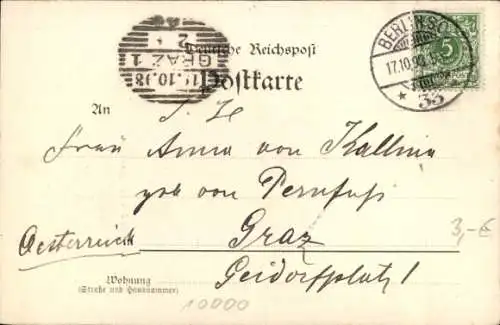 Deutsche Reichspost
Postkarte
GRAZ 1
BERLIN S.O.
17.10.98
33
5
An
S. H
Frau Anna von Kallina
geb von Pernfuss
Graz
3,-€
Oesterreich
Geidorfplatz 1
Wohnung
(Straße und Hausnummer)
10000